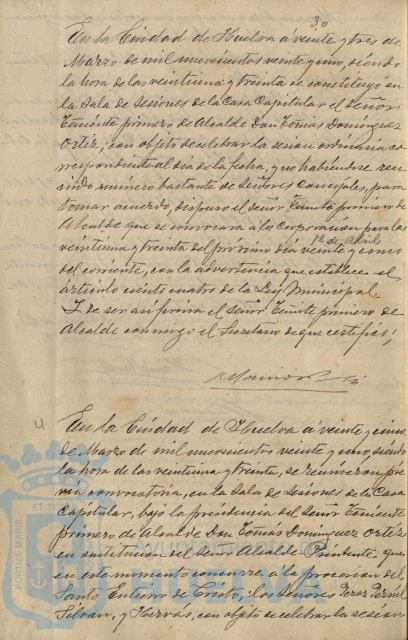 30
En la Ciudad de Huelva á veinte y tres de
Marzo de mil nuevecientos veinte y uno, siendo
la hora de las veintiuna y treinta se constituyó en
la Sala de Sesiones de la Casa Capitular el Señor
Teniente primero de Alcalde Don Tomás Domínguez
Ortíz, con objeto de celebrar la sesion ordinaria co
rrespondiente al día de la fecha, y no habiéndose reu
nido número bastante de Señores Concejales, para
tomar acuerdo, dispuso el señor Teniente primero de
Alcalde que se convocara á la Corporación para las
veintiuna y treinta del proximo día veinte y cinco
del corriente, con la advertencia que establece el
artículo ciento cuatro de la Ley Municipal.
Y de ser así firma el señor Teniente primero de
Alcalde conmigo el Secretario de que certifico;
4
En la Ciudad de Huelva á veinte y cinco
de Marzo de mil nuevecientos veinte y uno siendo
la hora de las veintiuna y treinta, se reunieron pre
via convocatoria, en la Sala de Sesiones de la Casa
Capitular, bajo la presidencia del Señor Teniente
primero de Alcalde Don Tomás Domínguez Ortíz
en sustitucion del Señor Alcalde Presidente que
en este momento concurre á la procesion del
Santo Entierro de Cristo, los Señores Perez
y Hervás, con objeto de celebrar la sesión
PORTUS MARIS